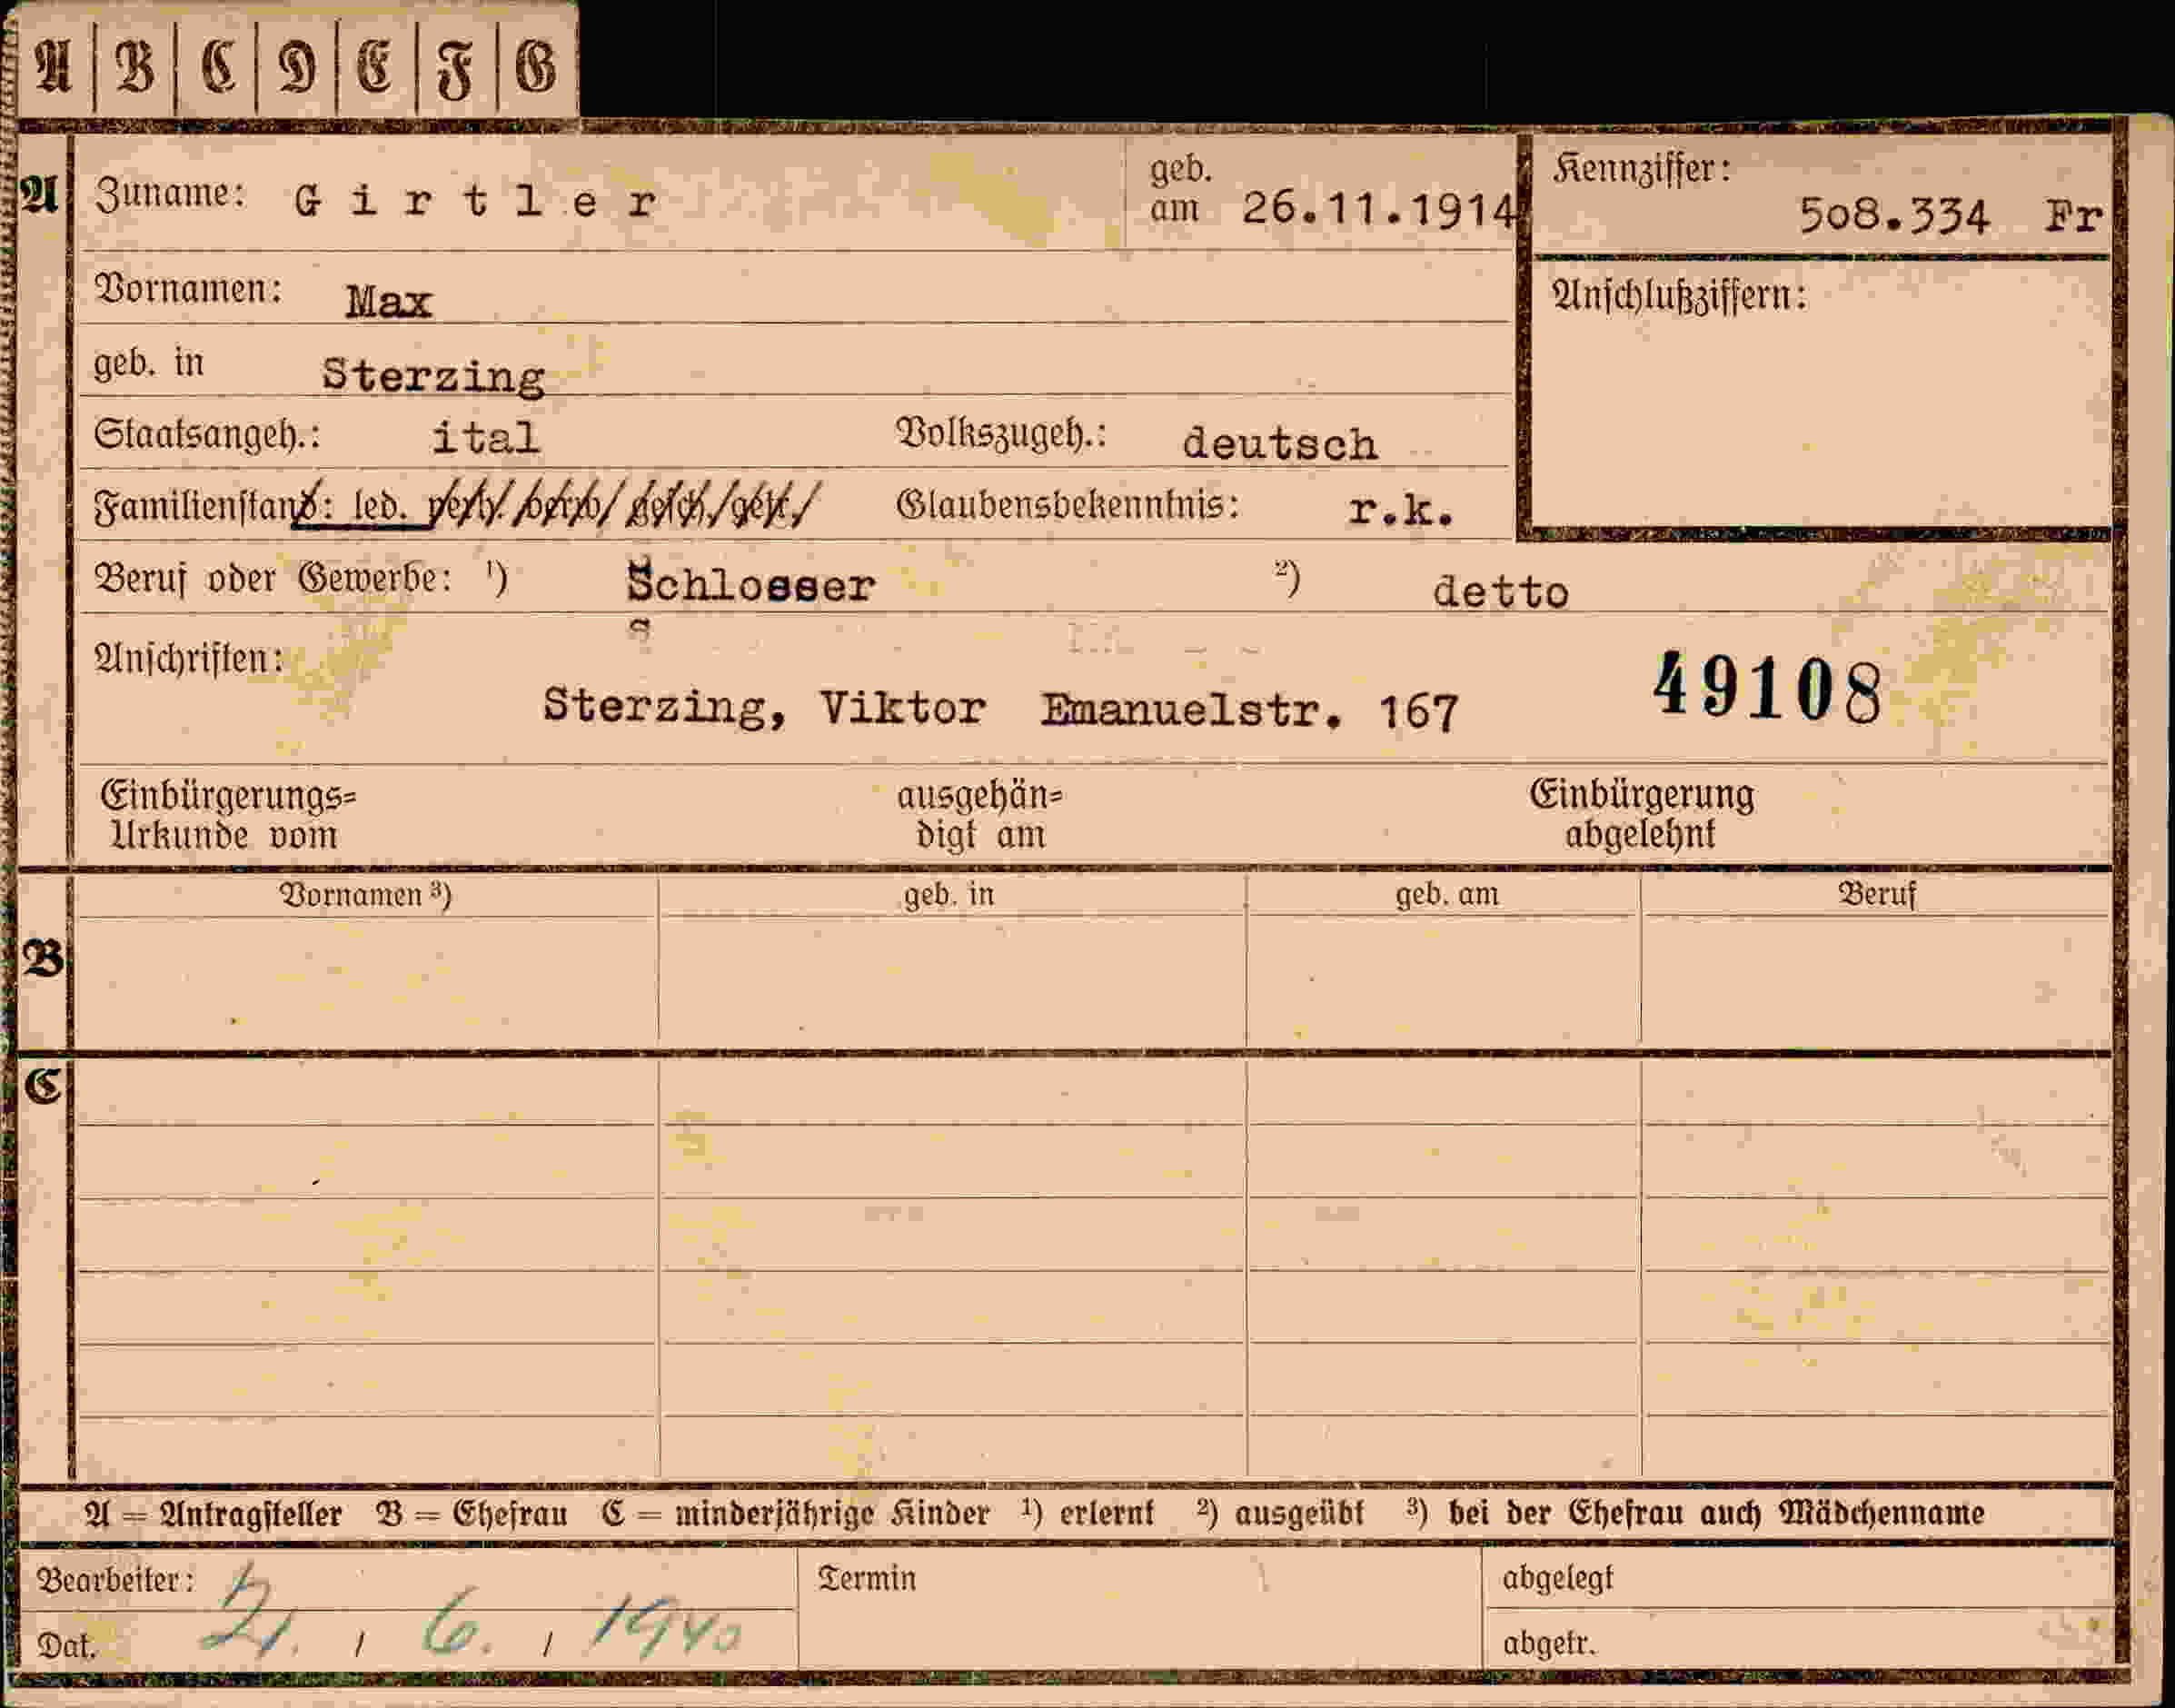 A B C D E F G
A Zuname: Girtler geb. am 26.11.1914 Kennziffer: 508.334 Fr
Vornamen: Max Anschlußziffern:
geb. in Sterzing
Staatsangeh.: ital Volkszugeh.: deutsch
Familienstand: led. verh. verw. gesch. getr. Glaubensbekenntnis: r.k.
Beruf oder Gewerbe: ¹) Schlosser ²) detto
Anschriften:
Sterzing, Viktor Emanuelstr. 167 49108
Einbürgerungs= ausgehän= Einbürgerung
Urkunde vom digt am abgelehnt
Vornamen ³) geb. in geb. am Beruf
B
C
A = Antragsteller B = Ehefrau C = minderjährige Kinder ¹) erlernt ²) ausgeübt ³) bei der Ehefrau auch Mädchenname
Bearbeiter: Termin abgelegt
Dat. / 6. / 1940 abgetr.